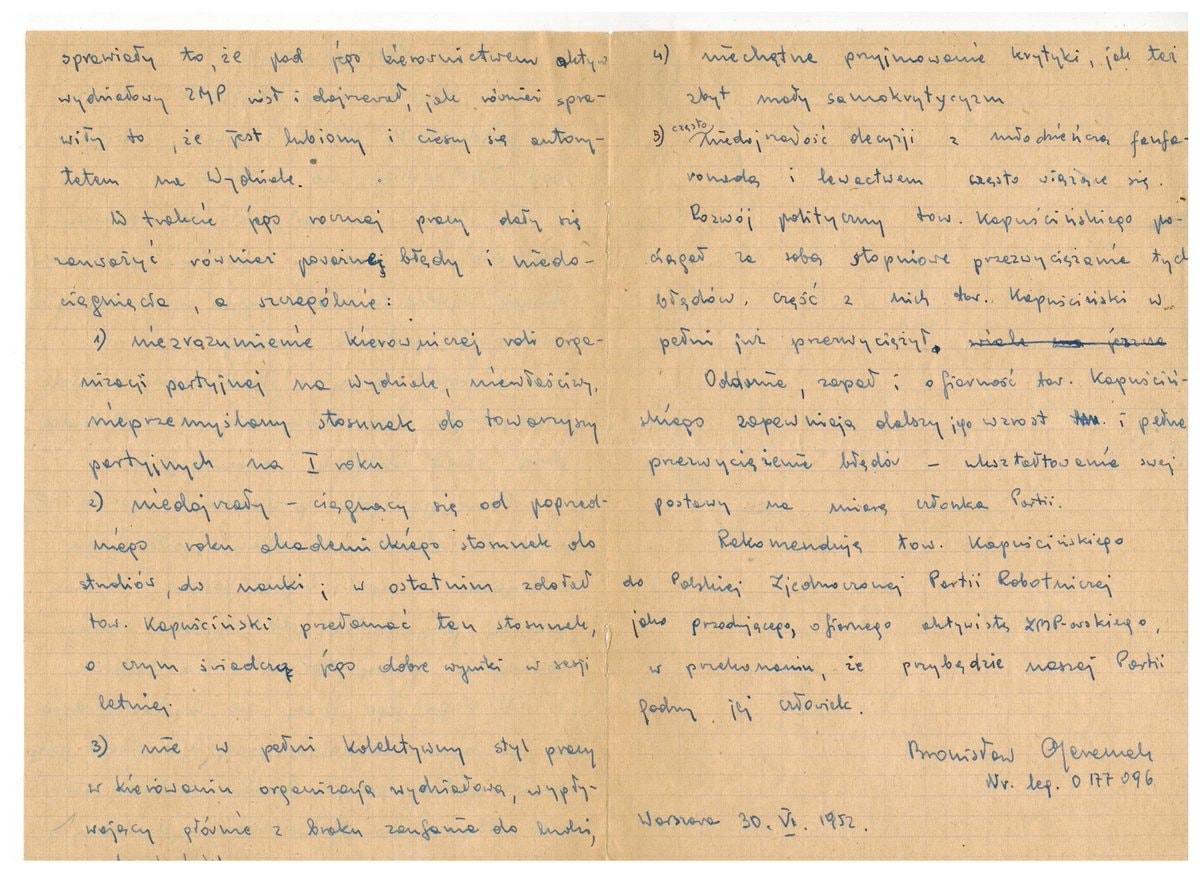 sprawiały to, że pod jego kierownictwem aktyw
wydziałowy ZMP rósł i dojrzewał, jak również spra-
wiły to, że jest lubiany i cieszy się autory-
tetem na Wydziale.
W trakcie jego rocznej pracy dały się
zauważyć również poważne błędy i niedo-
ciągnięcia, a szczególnie:
1) niezrozumienie kierowniczej roli orga-
nizacji partyjnej na wydziale, niewłaściwy,
nieprzemyślany stosunek do towarzyszy
partyjnych na I roku
2) niedojrzały – ciągnący się od poprzed-
niego roku akademickiego stosunek do
studiów, do nauki; w ostatnim zdołał
tow. Kapuściński przełamać ten stosunek,
o czym świadczą jego dobre wyniki w sesji
letniej.
3) nie w pełni kolektywny styl pracy
w kierowaniu organizacją wydziałową, wypły-
wający głównie z braku zaufania do ludzi,
4) niechętne przyjmowanie krytyki, jak też
zbyt mały samokrytycyzm
5) często niedojrzałość decyzji z młodzieńczą fanfa-
ronadą i lewactwem często wiążące się.
Rozwój polityczny tow. Kapuścińskiego po-
ciągał za sobą stopniowe przezwyciężanie tych
błędów, część z nich tow. Kapuściński w
pełni już przezwyciężył.
Oddanie, zapał i ofiarność tow. Kapuściń-
skiego zapewniają dalszy jego wzrost i pełne
przezwyciężenie błędów – ukształtowanie swej
postawy na miarę członka Partii.
Rekomenduję tow. Kapuścińskiego
do Polskiej Zjednoczonej Partii Robotniczej
jako przodującego, ofiarnego aktywistę ZMP-owskiego,
w przekonaniu, że przybędzie naszej Partii
godny jej człowiek.
Bronisław Geremek
Nr. leg. 0177096
Warszawa 30. VI. 1952.